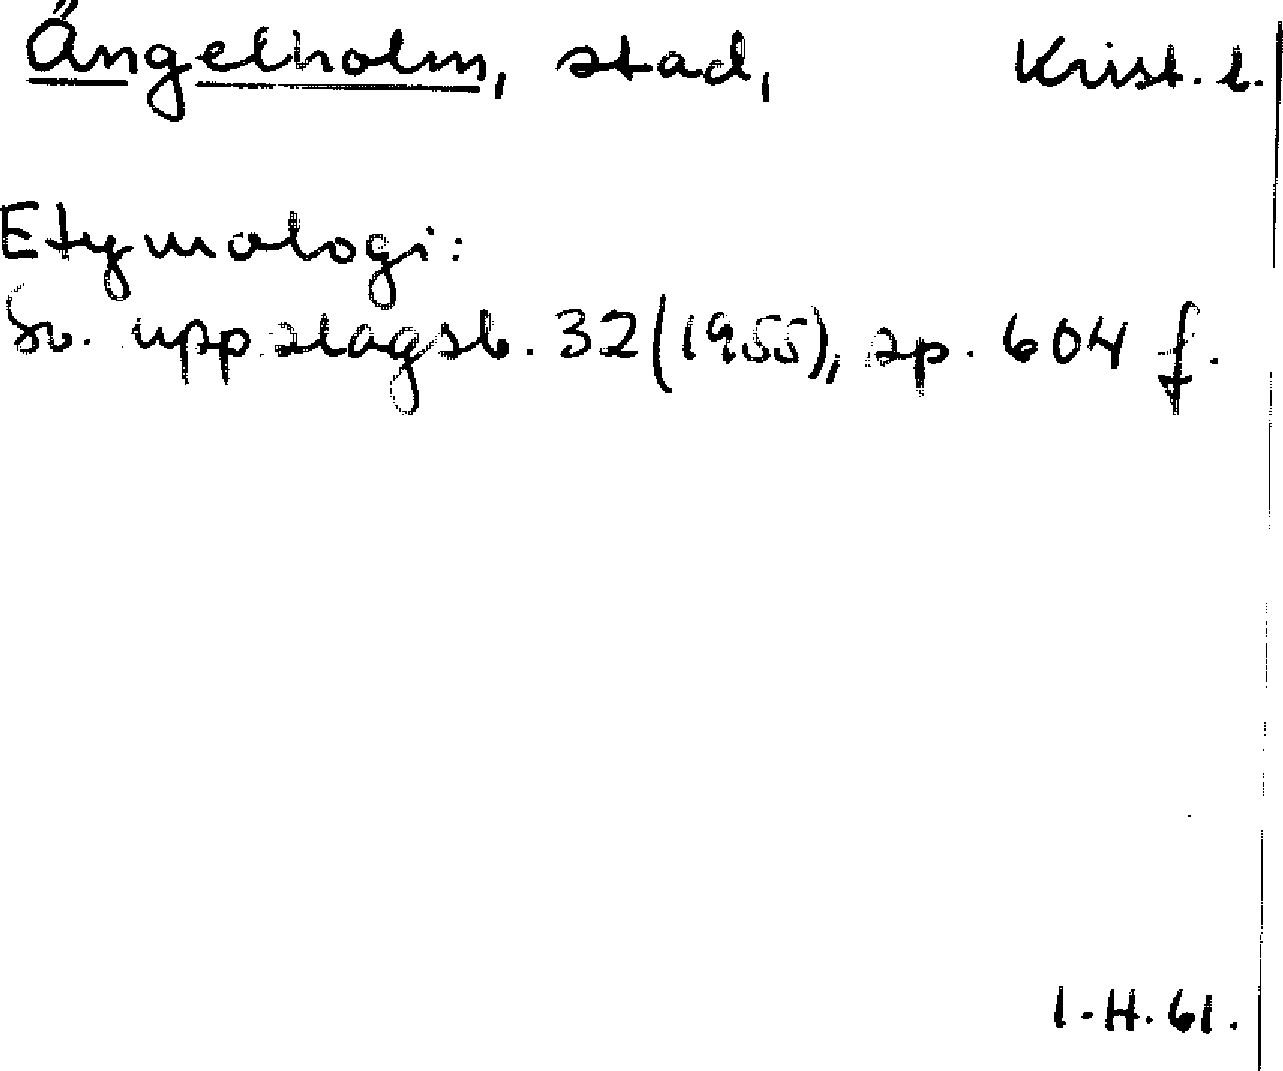 Ängelholm, stad, Krist. l.
Etymologi:
Sv. uppslagsb. 32 (1955), sp. 604 f.
I.H. 61.